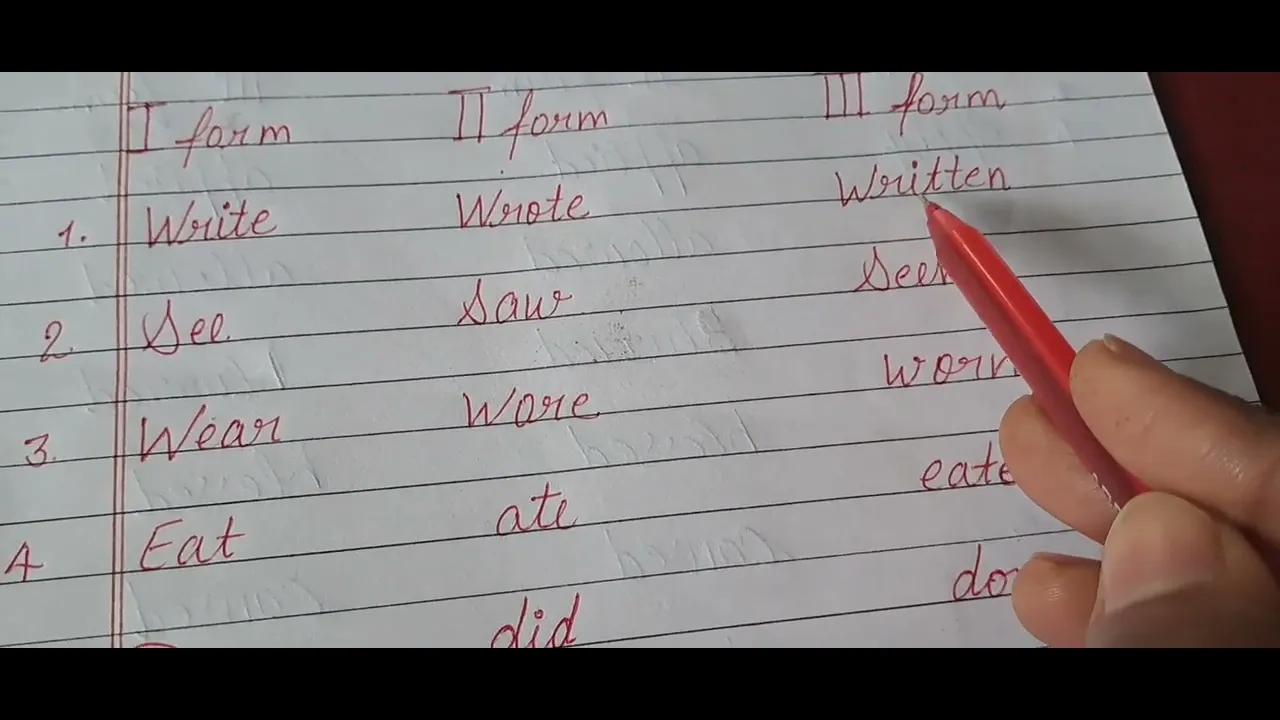 I form II form III form
1. Write Wrote Written
2. See Saw
3. Wear Wore worn
4 Eat ate
did